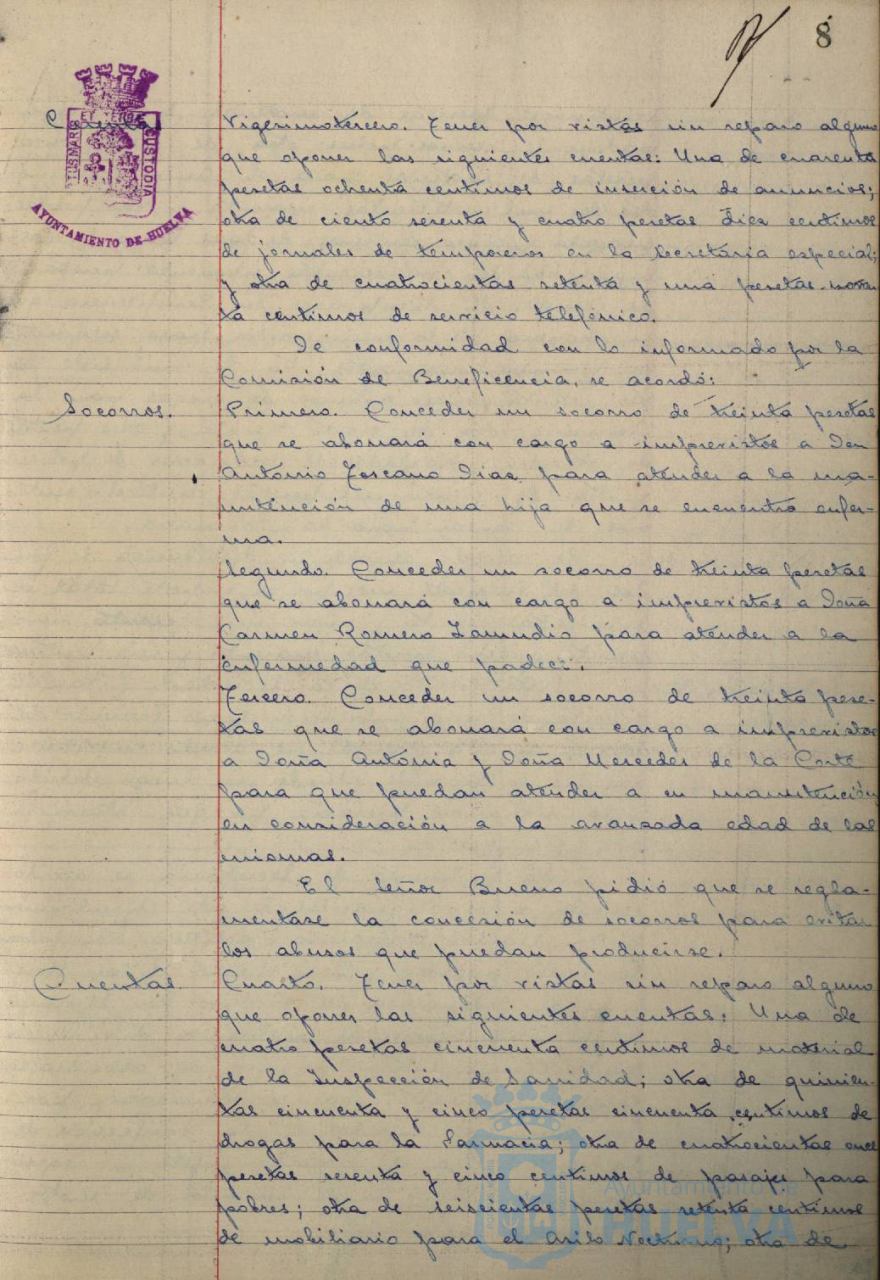 8
ET TERRE
PORTUS MARIS
CUSTODIA
AYUNTAMIENTO DE HUELVA
Cuentas
Vigesimotercero. Tener por vistas sin reparo alguno
que oponer las siguientes cuentas: Una de cuarenta
pesetas ochenta centimos de inserción de anuncios;
otra de ciento sesenta y cuatro pesetas diez centimos
de jornales de temporeros en la Secretaria especial;
y otra de cuatrocientas setenta y una pesetas noven
ta centimos de servicio telefónico.
De conformidad con lo informado por la
Comisión de Beneficencia, se acordó:
Socorros.
Primero. Conceder un socorro de treinta pesetas
que se abonará con cargo a imprevistos a Don
Antonio Toscano Dias para atender a la ma-
nutención de una hija que se encuentra enfer-
ma.
Segundo. Conceder un socorro de treinta pesetas
que se abonará con cargo a imprevistos a Doña
Carmen Romero Zamudio para atender a la
enfermedad que padece.
Tercero. Conceder un socorro de treinta pese-
tas que se abonará con cargo a imprevistos
a Doña Antonia y Doña Mercedes de la Corte
para que puedan atender a su manutención
en consideración a la avanzada edad de las
mismas.
El Señor Bueno pidió que se regla-
mentase la concesión de socorros para evitar
los abusos que puedan producirse.
Cuentas.
Cuarto. Tener por vistas sin reparo alguno
que oponer las siguientes cuentas: Una de
cuatro pesetas cincuenta centimos de material
de la Inspección de Sanidad; otra de quinien-
tas cincuenta y cinco pesetas cincuenta centimos de
drogas para la Farmacia; otra de cuatrocientas once
pesetas sesenta y cinco centimos de pasajes para
pobres; otra de seiscientas pesetas setenta centimos
de mobiliario para el Asilo Nocturno; otra de
Ayuntamiento de
HUELVA